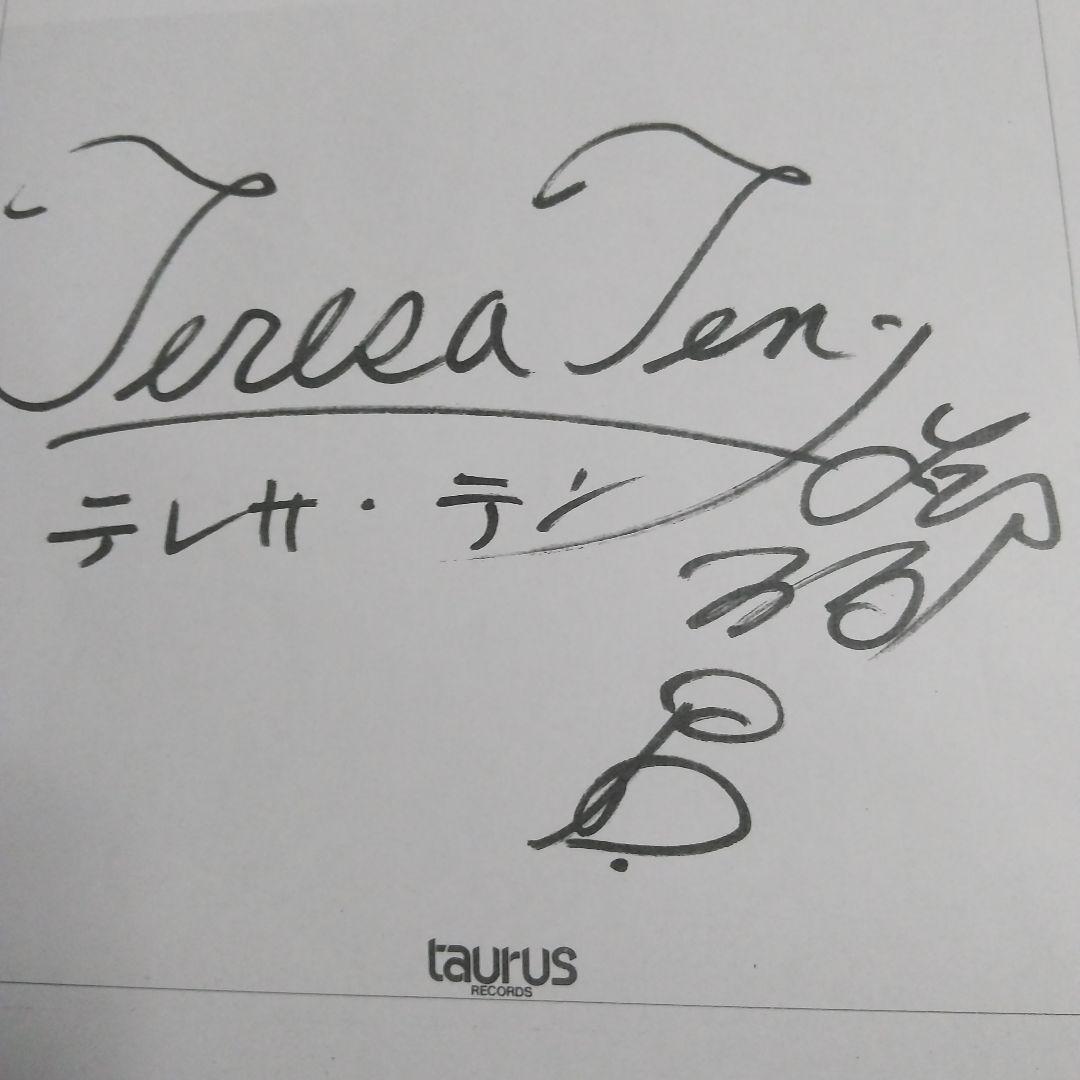 Teresa Teng
テレサ・テン
鄧
麗
君
taurus
RECORDS